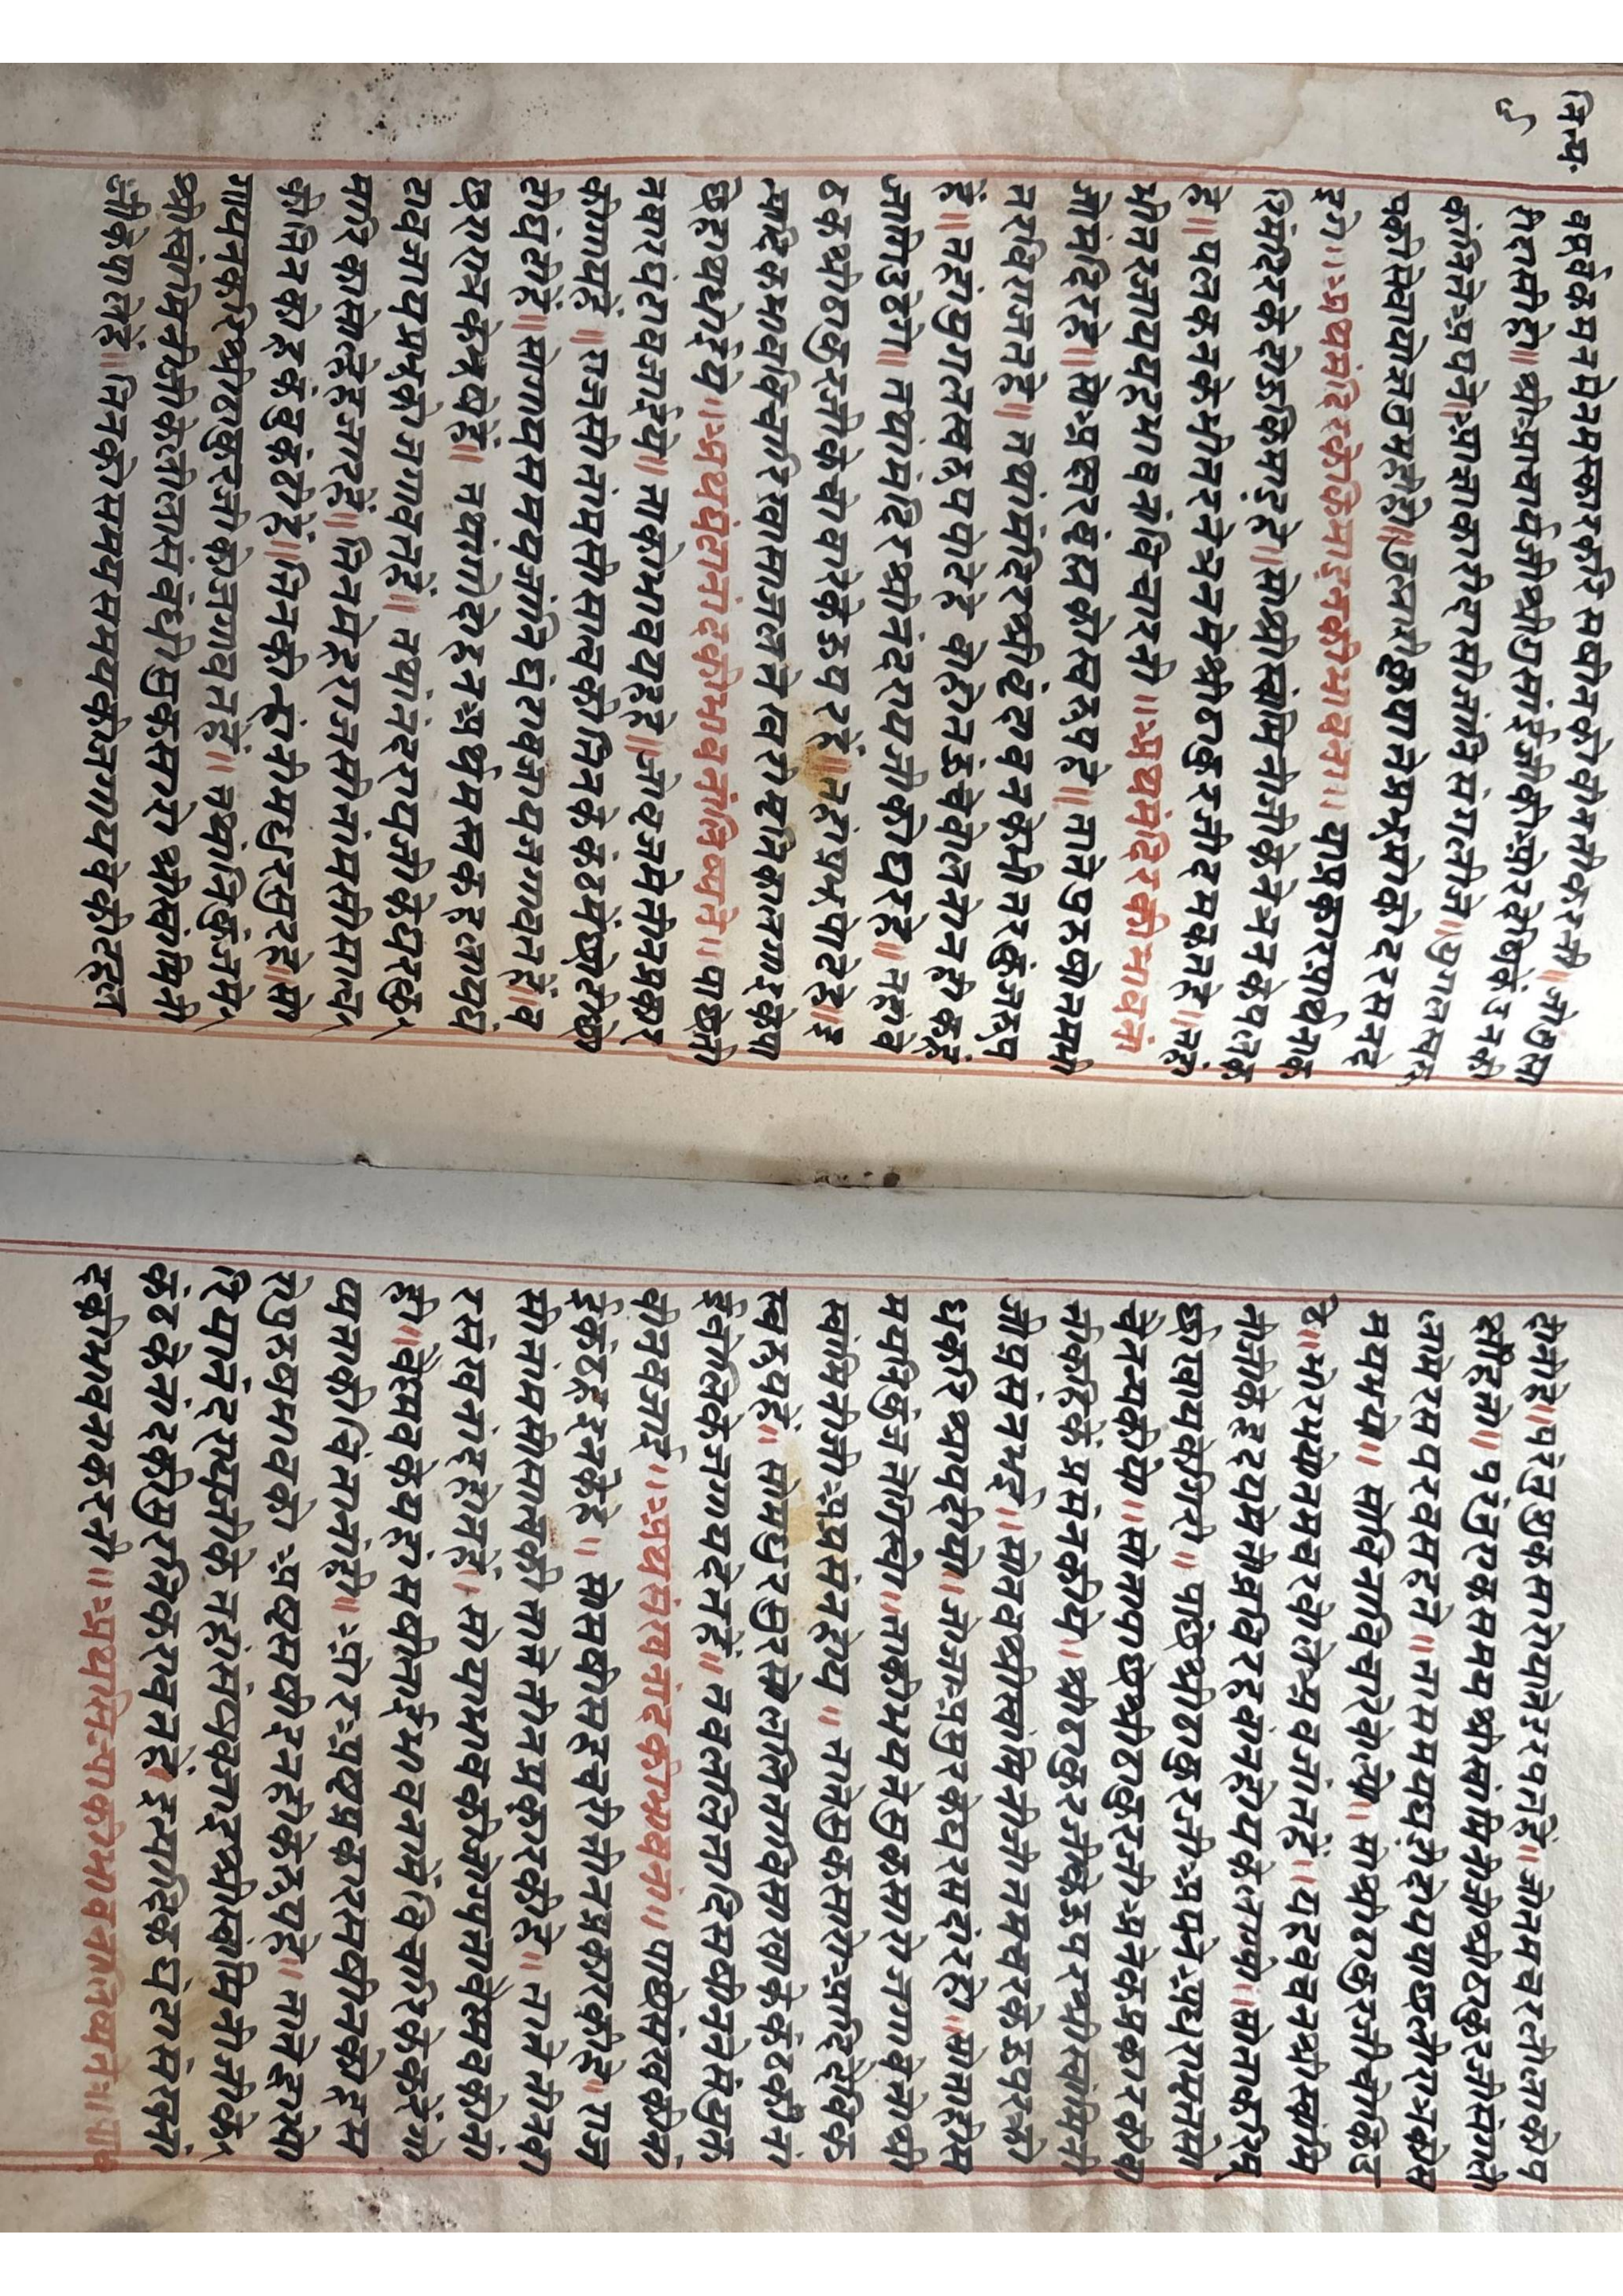 नित्य
५
वपूर्वक मनमे नमस्कार करि सबोनको वीनती करनी॥ जो तुमा
री दासी हो॥ श्रीआचार्यजी श्रीगुसांईजीकी ओर वैष्णव उनकी
कांनितें अपने आज्ञाकारी दासी जानि संभालीजे॥ युगल स्वरू
पकी सेवा योग्य तुमही हो॥ तुमारी कृपातें प्रभु मोको दरसन दे
इगे॥ अथ मंदिरके किमाडकी भावना॥ या प्रकार प्रार्थनाक
रि मंदिरके दोऊ किमाड हे॥ सो श्रीस्वामिनीजीके नेत्रनके पलक
हे॥ पलकनके भीतर नेत्रनमे श्रीठाकुरजी दमकत हे॥ तहां
भीतर जाय यह भाव नां विचारनो॥ अथ मंदिरकी भावना
जो मंदिर हे॥ सो अक्षर ब्रह्मको स्वरूप हे॥ ताते पुरुषोत्तम भी
तर विराजत हे॥ तथा मंदिर श्रीवृंदावनके भीतर कुंज रूप
हे॥ तहां युगल स्वरूप पोढे हे कोहोत ऊंचे बोलतो नही कहे
जागि उठेगे॥ तथा मंदिर श्रीनंदरायजीको घर हे॥ तहां बे
ठक श्रीठाकुरजीके चोवारेके ऊपर हे॥ तहां प्रभु पोढे हे॥ इ
त्यादिक भाव विचारि खासाजलते खवरी खूनिका लगाइके पा
छे हाथ धोईये॥ अथ घंटानादकी भावना लिख्यते॥ पाछे ती
नवार घंटा बजाइये॥ ताको भाव यह हे॥ जो व्रजमे तीन प्रकार
की गाय हे॥ राजसी तामसी सात्वकी तिनके कंठमे छोटी छो
टी घंटी हे॥ सो गाय समय जानि घंटा बजाय जगावत हे॥ व
छरा रात्रके भूखे हे॥ तथा गोदोहन अर्थ भक्तकहलाय घं
टा बजाय प्रभुको जगावत हे॥ तथा नंदरायजीके घरकु
मारि का सोलेहजार हे॥ तिनमे हू राजसी तामसी सात्व
की तिनको हू कंबुकंठी हे॥ तिनकी चूरीनमे मधुरसुर हे॥ सो
गायनकरि श्रीठाकुरजीको जगावत हे॥ तथा निकुंजमे
श्रीस्वामिनीजीके लीलासंबंधी शुकसारो श्रीस्वामिनी
जीके पाले हे॥ तिनको समय समयकी जगायवेकी टहल
दीनी हे॥ परंतु शुकसारो या ते डरपत हे॥ जो तमचर लीलाको प
क्षी हतो॥ परंतु एक समय श्रीस्वामिनीजी श्रीठाकुरजी मंगली
लामे रसपरवस हते॥ ता समय घडी दोय पाछली रात्रको स
मय भयो॥ सो विना विचारे बोल्यो॥ सो श्रीठाकुरजी चोंकि उ
ठे॥ भोर भयो तमचर बोले अब जांत हे॥ यह वचन श्रीस्वामि
नीजीके हृदयमे तीव्र विरह वांन होयके लग्यो॥ सो ताकरि मू
र्छा खायके गिरी॥ पाछे श्रीठाकुरजी अपने अधरामृतसो
चेतन्य कीये॥ सो ता पाछे श्रीठाकुरजी अनेक प्रकारकी बा
तें कहिके प्रसन्न कीये॥ श्रीठाकुरजीके ऊपर श्रीस्वामिनी
जी प्रसन्न भई॥ सो तब श्रीस्वामिनीजी तमचरके ऊपर क्रो
ध करि श्राप दीयो॥ जो जा असुरके घर सदा रहो॥ सो ता हीस
मय निकुंजते गिर्यो॥ ताको भयते शुकसारो जगावे तो श्री
स्वामिनीजी अप्रसन्न होय॥ ताते शुकसारो आदि दे विवि
स्वरूप हे॥ सो मधुर सुरसो ललिता विसाखाके कंठकी नां
ई बोलिके जगाय देत हे॥ तब ललितादि सखी तनसंयुक्त
वीन बजाई॥ अथ संखनादकी भावना॥ पाछे संखकी नां
ईं कंठ हे इनके हे॥ सो सखी सहचरी तीन प्रकारकी हे॥ राज
सी तामसी सात्वकी ताते तीन प्रकारकी हे॥ ताते तीनवा
र संखनाद होत हे॥ सो या भावकी जो भावना वैष्णवको
हे॥ वैष्णवको यहां सखीनाई भावनामे विचारिके करे जो
भावनाको चिंतनां हे॥ और अष्टप्रकार सखीनको हू स
खी पुरुष भावको अष्टसखी इनहीके रूप हे॥ ताते द्वारपा
रिया नंदरायजीके तहां संखबजाइ श्रीस्वामिनीजीके
कंठके नादकी सुरति करावत हे इत्यादिक घंटा संखना
दकी भावना करनी॥ अथ सिज्याकी भावना लिख्यते॥ पा